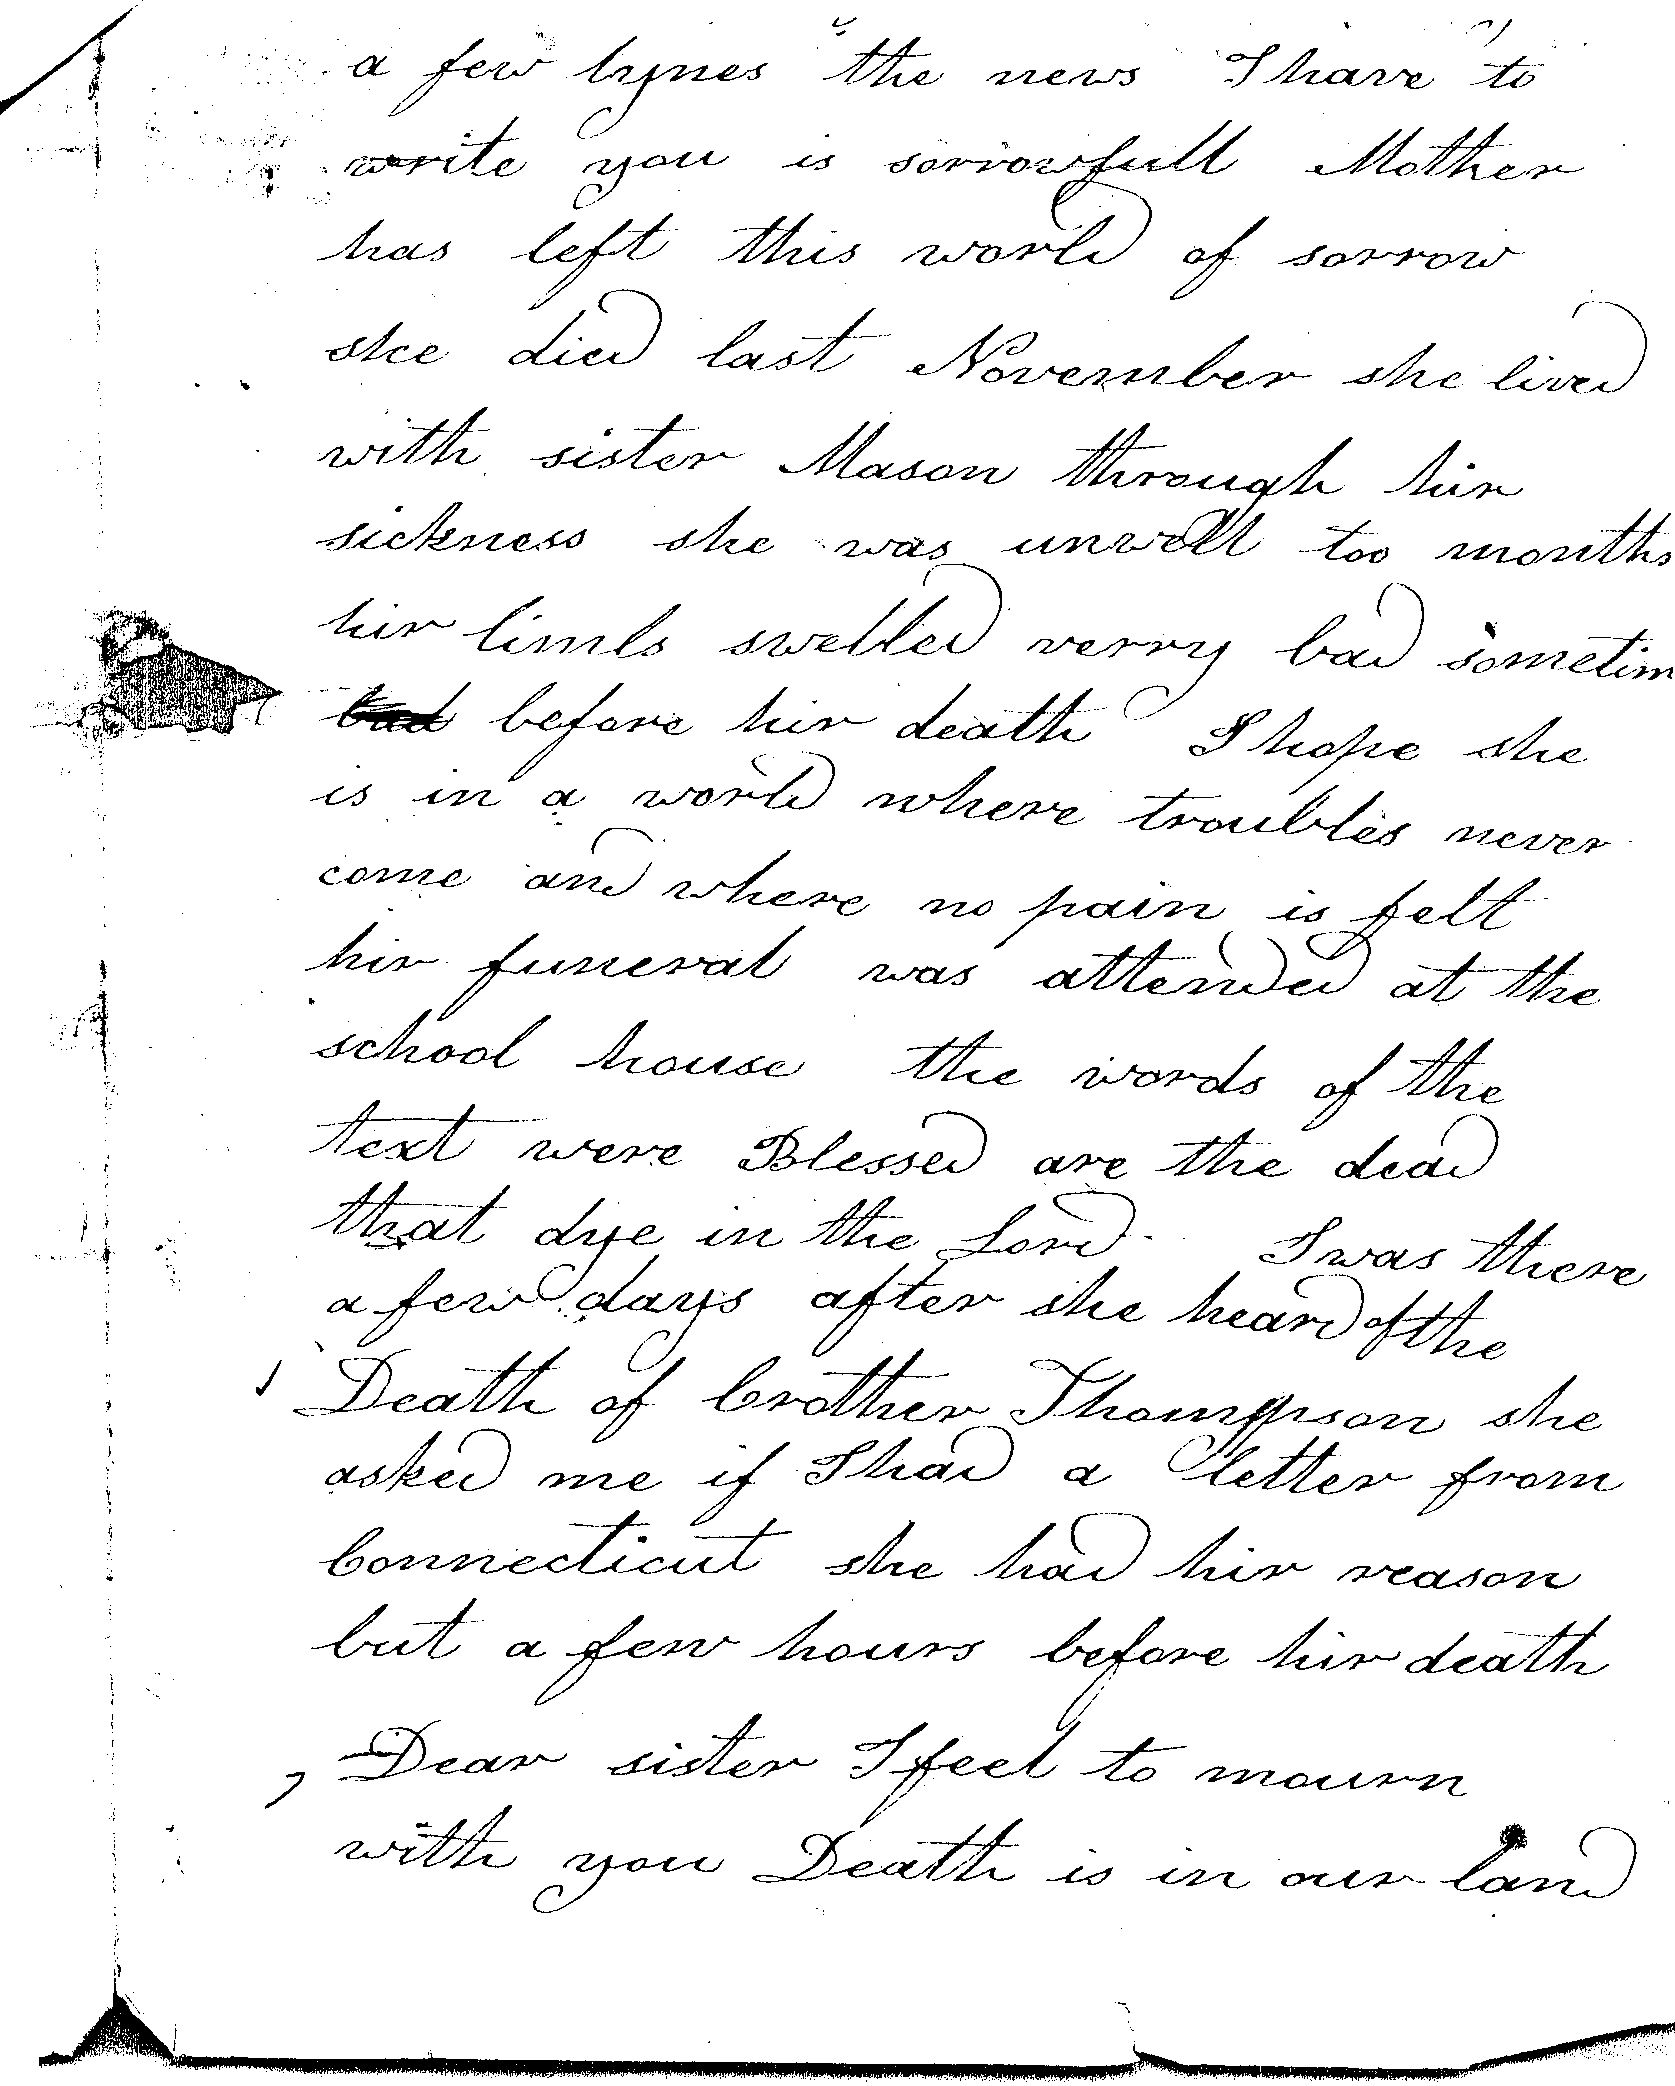 a few lynes the news I have to
write you is sorrowfull Mother
has left this world of sorrow
she died last November she lived
with sister Mason through hir
sickness she was unwell too months
hir limls swelled verry bad sometim
bad before hir death I hope she
is in a world where troubles never
come and where no pain is felt
hir funeral was attended at the
school house the words of the
text were Blessed are the dead
that dye in the Lord I was there
a few days after she heard of the
Death of brother Thompson she
asked me if I had a letter from
Connecticut she had hir reason
but a few hours before hir death
Dear sister I feel to mourn
with you Death is in our land